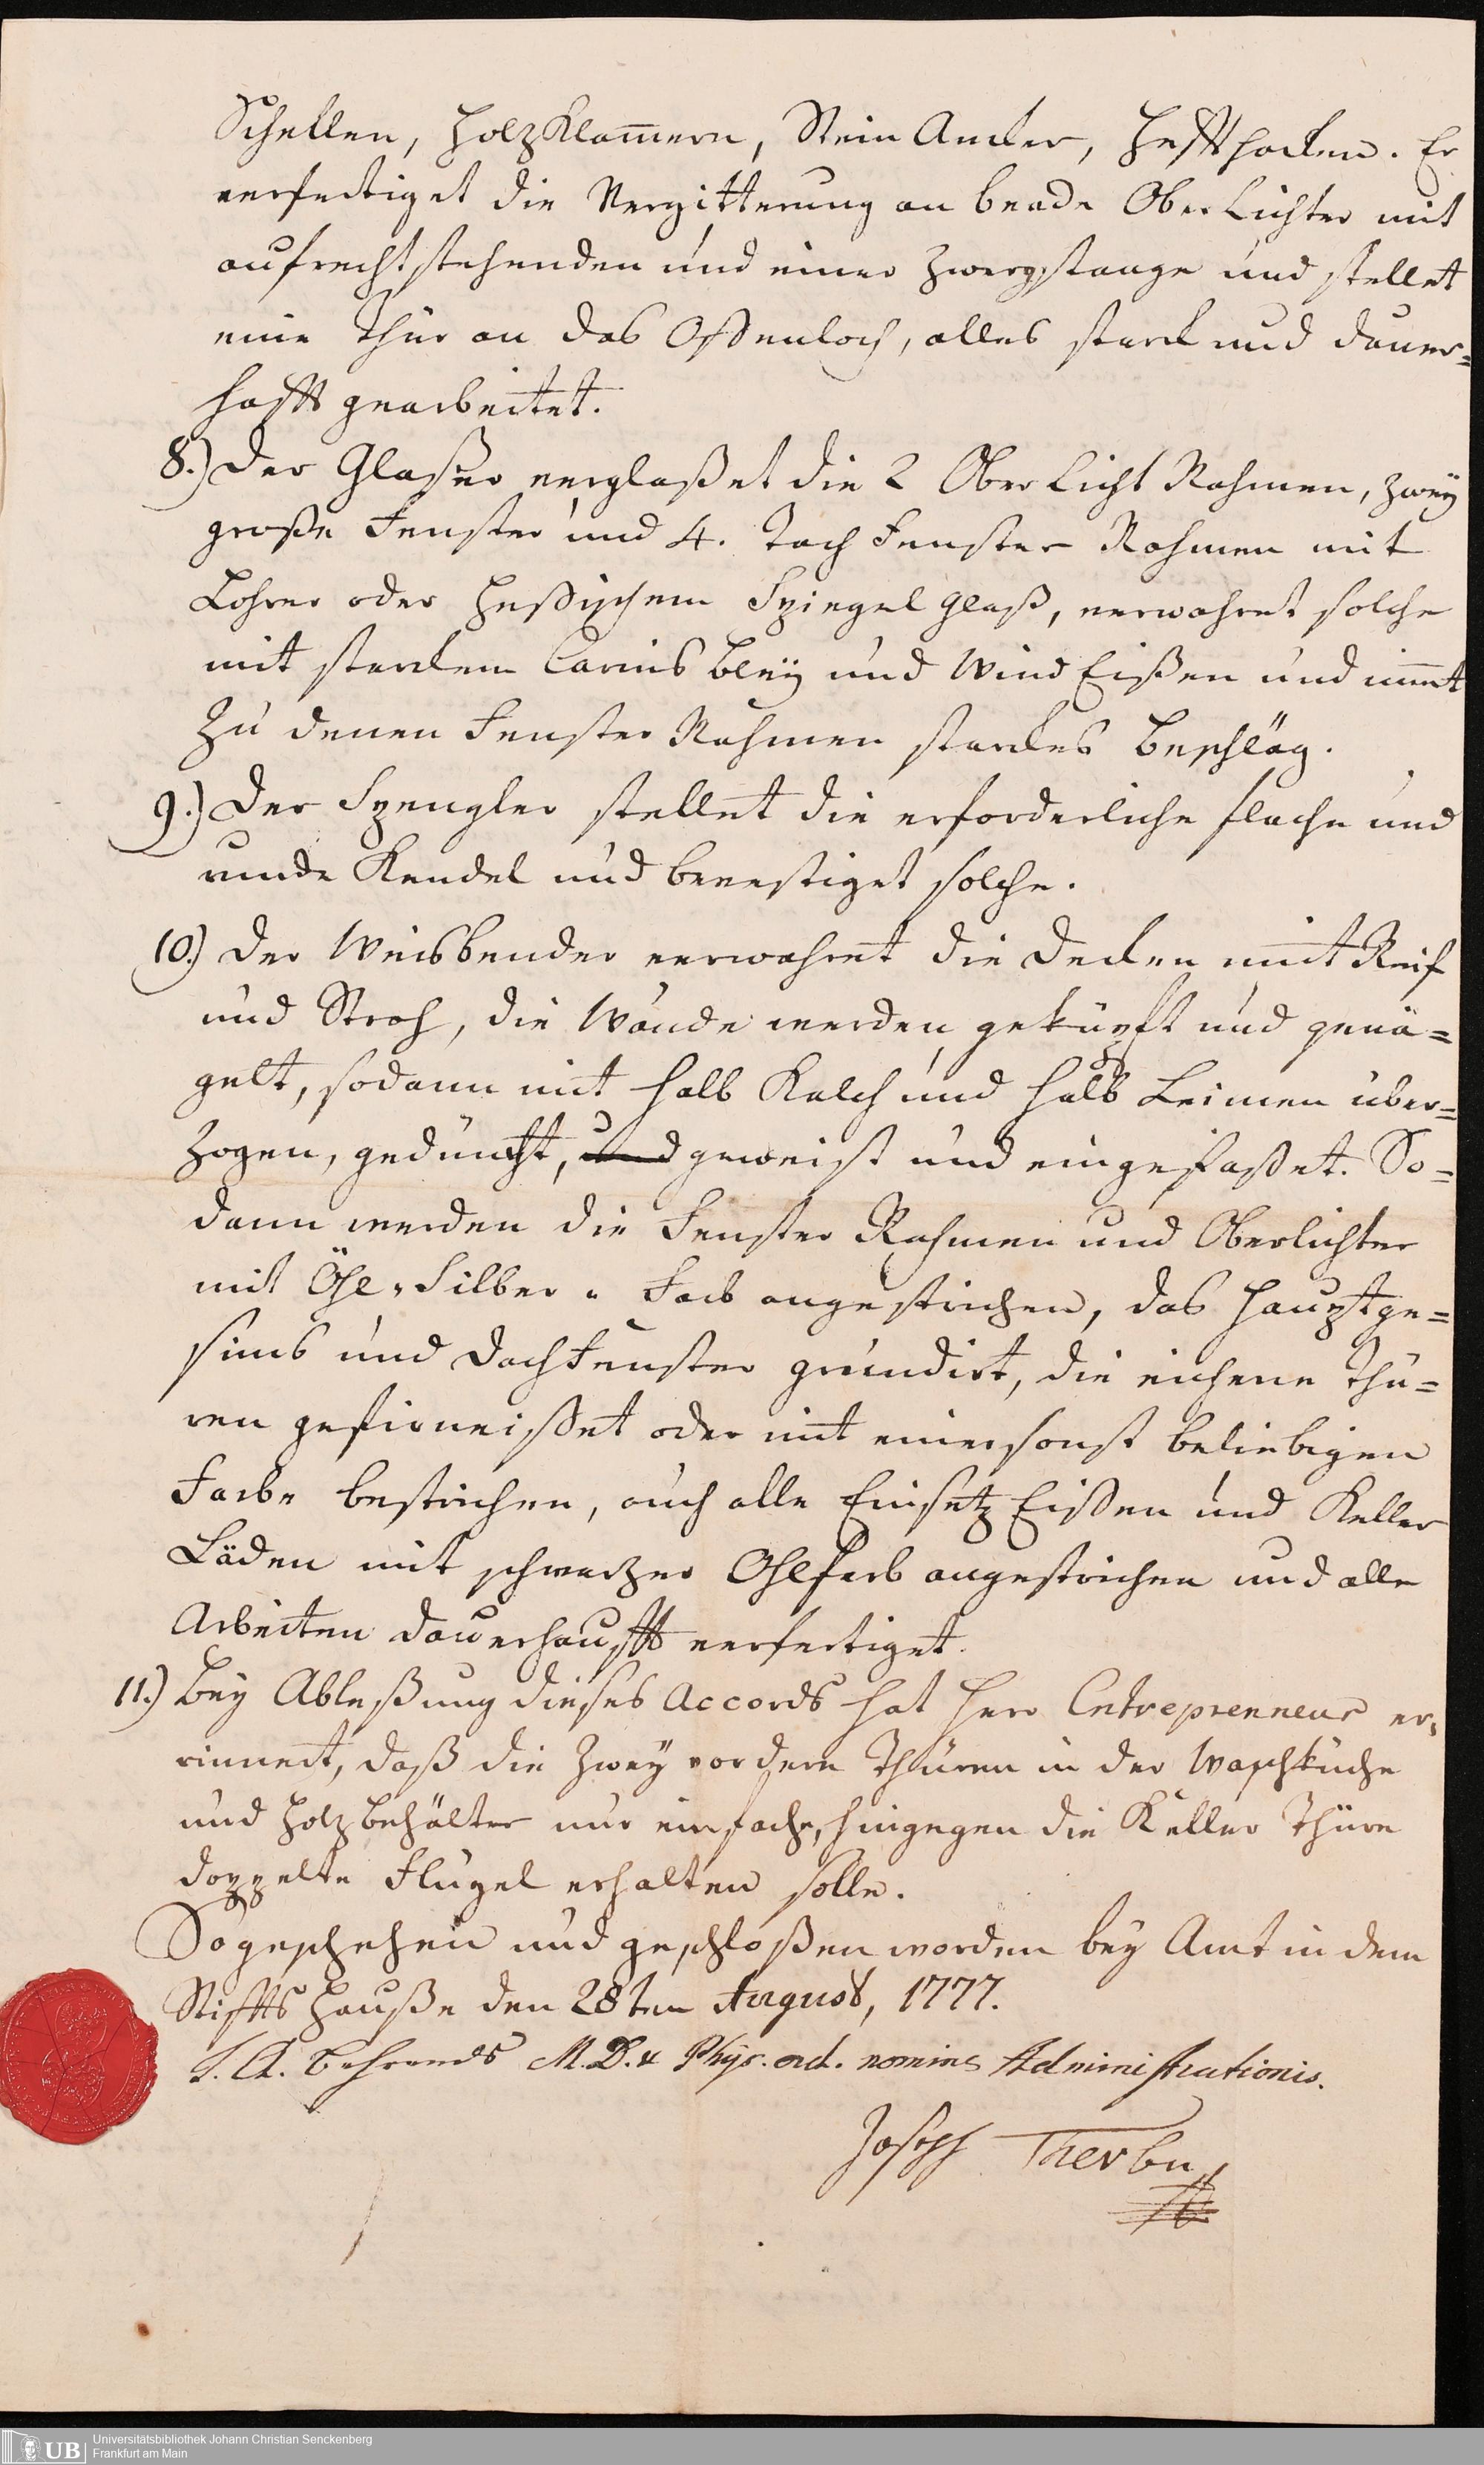 Schellen, HolzKlam̅ern, Stein Ancker, Heffthacken. Er
verfertiget die Vergitterung an beade Ober Lichter mit
aufrecht stehenden und einer Zwergstange und stellet
eine Thür an das Offenloch, alles starck und dauer=
hafft gearbeitet.
8.) Der Glaßer verglaßet die 2 Ober Licht Rahmen, zwey
große Fenster und 4. Tach Fenster Rahmen mit
Lohrer oder Heßischem Spiegel Glaß, verwahret solche
mit starckem Carnis Bley und Wind Eißen und nim̅t
zu denen Fenster Rahmen starckes Beschläg.
9.) Der Spengler stellet die erforderliche flache und
runde Kendel und bevestiget solche.
10.) Der Weisbender verwahret die Decken mit Reif
und Stroh, die Wände werden geküpft und genä=
gelt, sodann mit halb Kalch und halb Leimen über=
zogen, gedüncht, und geweist und eingefaßet. So=
dann werden die Fenster Rahmen und Oberlichter
mit Öhl-Silber-Farb angestrichen, das Hauptge=
sims und Dachfenster gründirt, die eichene Thü=
ren gefirneisset oder mit einer sonst beliebigen
Farbe bestrichen, auch alle Einsetz Eissen und Keller
Läden mit schwarzer Ohlfarb angestrichen und alle
Arbeiten dauerhaufft verfertiget.
11.) Bey Ableßung dieses Accords hat Herr Entreprenneur er,
rinnert, daß die Zwey vordere Thüren in der Waschküche
und Holzbehälter nur einfache, hingegen die Keller Thüre
doppelte Flügel erhalten solle.
So geschehen und geschloßen worden bey Amt in dem
Stiffts Hauße den 28ten August, 1777.
J. A. Behrends M.D. & Phys. ord. nomine Administrationis.
Joseph Therbu
UB
Universitätsbibliothek Johann Christian Senckenberg
Frankfurt am Main